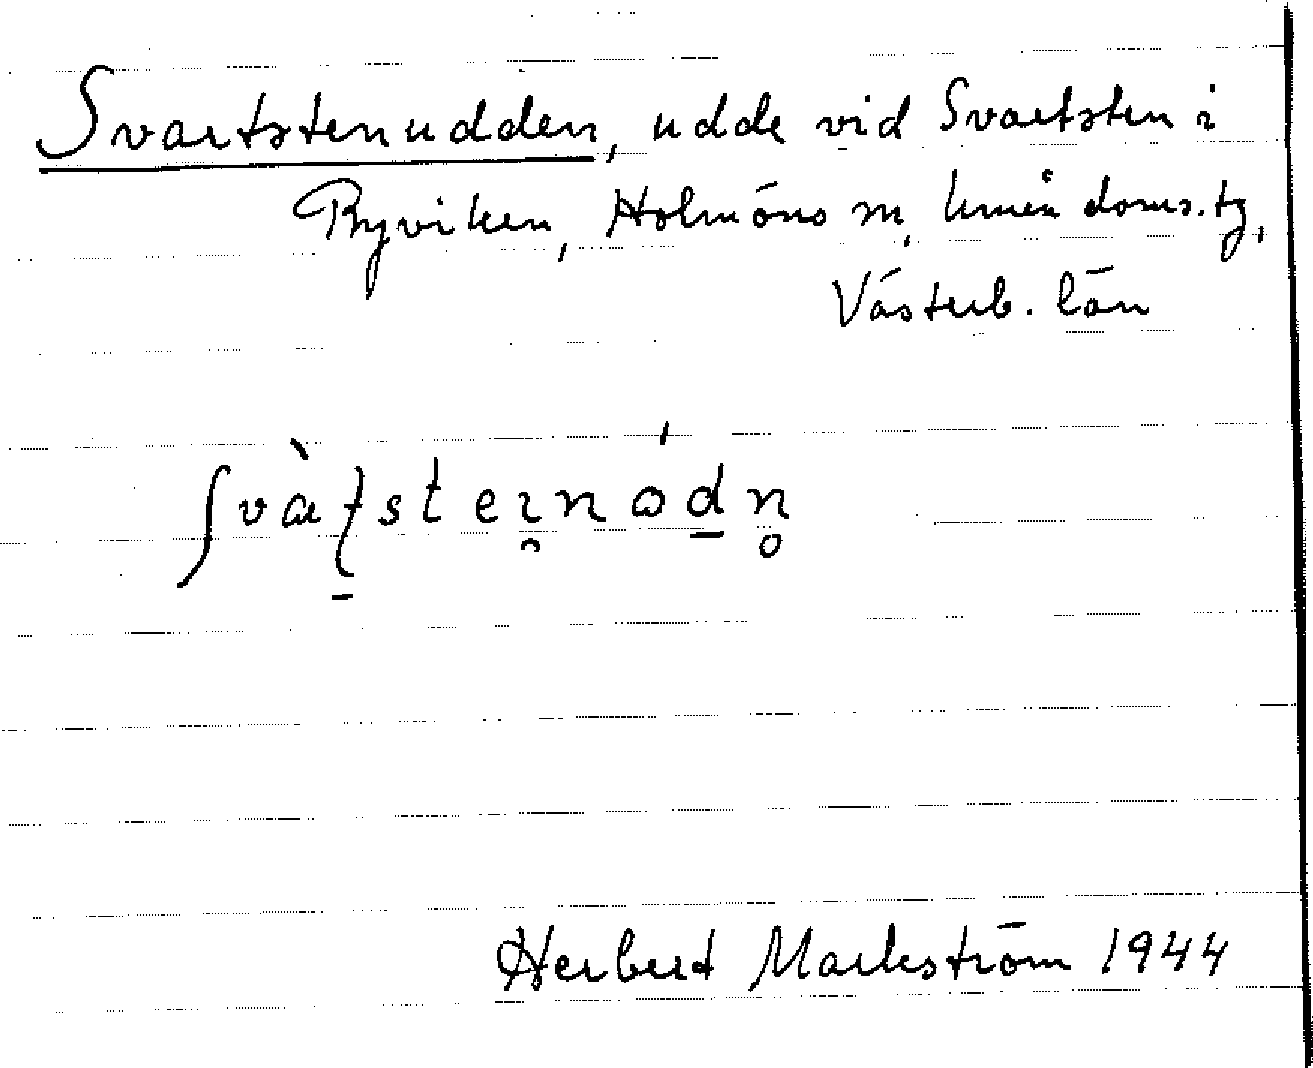 Svartstenudden, udde vid Svartsten i
Byviken, Holmöns sn, Umeå doms. tg,
Västerb. län
svàʈsteɪnódn̥
Herbert Markström 1944